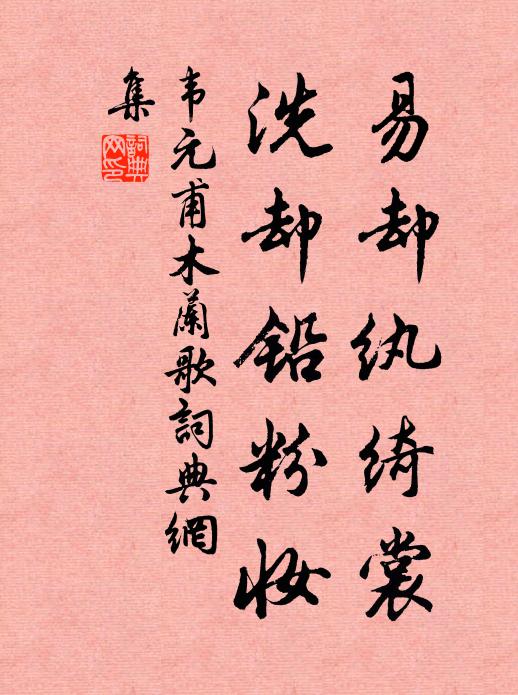 易却纨绮裳
洗却铅粉妆
韦元甫木蘭歌詞典網
集
詞典网印